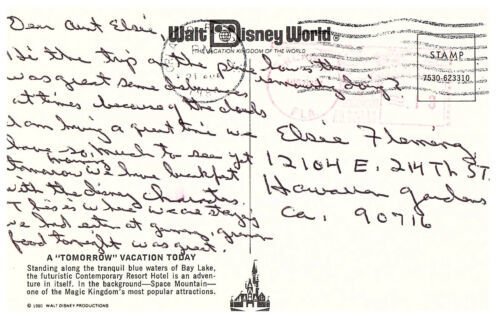 Dear Aunt Elsie,
Hi the trip on the plane
was great some
at times because of the clouds
I am having a great time we
have so, much to see yet
tomorrow morning we have breakfast
with the disney characters.
This is where we are staying
we had eaten at
food tonight was great.
how's the
doing?
Walt Disney World®
THE VACATION KINGDOM OF THE WORLD
STAMP
7530-623310
FLA
Elsie Fleming
12104 E. 214Th ST.
Hawaiian Gardens
Ca. 90716
A "TOMORROW" VACATION TODAY
Standing along the tranquil blue waters of Bay Lake,
the futuristic Contemporary Resort Hotel is an adven-
ture in itself. In the background—Space Mountain—
one of the Magic Kingdom's most popular attractions.
© 1980 WALT DISNEY PRODUCTIONS